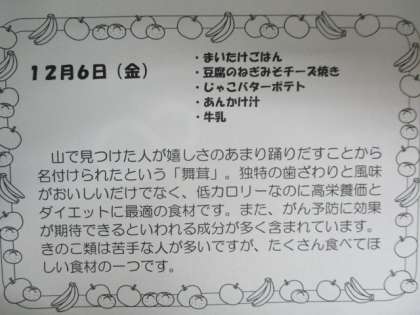 12月6日（金）
・まいたけごはん
・豆腐のねぎみそチーズ焼き
・じゃこバターポテト
・あんかけ汁
・牛乳
山で見つけた人が嬉しさのあまり踊りだすことから
名付けられたという「舞茸」。独特の歯ざわりと風味
がおいしいだけでなく、低カロリーなのに高栄養価と
ダイエットに最適の食材です。また、がん予防に効果
が期待できるといわれる成分が多く含まれています。
きのこ類は苦手な人が多いですが、たくさん食べてほ
しい食材の一つです。